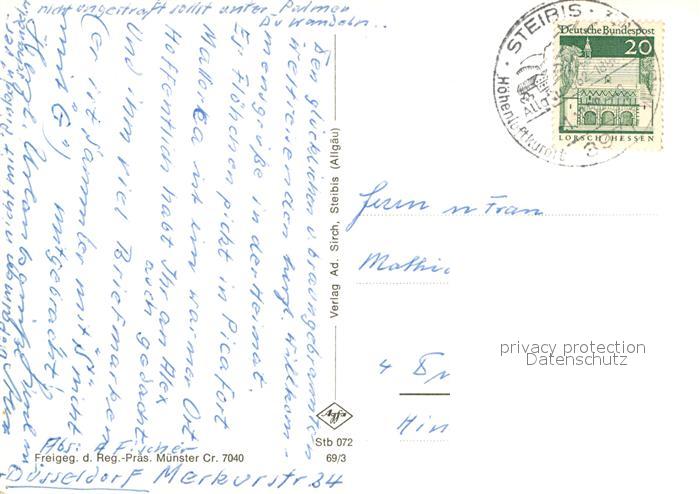 nicht ungestraft sollst unter Palmen
Du wandeln...
Den glücklichen u. braungebrannten
herzl. Willkom-
mensgrüße in der Heimat.
Er Flöhchen picht in Picafort
Mallorca ist ein warmer Ort
Hoffentlich habt Ihr an Alex
auch gedacht
Und ihm viel Briefmarken
mitgebracht!
(er ist Sammler mit "S" nicht
mit G")
Herzl.
Abs: A Fischer
Düsseldorf Merkurstr. 34
Freigeg. d. Reg.-Präs. Münster Cr. 7040
Verlag Ad. Sirch, Steibis (Allgäu)
Agfa
Stb 072
69/3
STEIBIS
Höhenluftkurort
Deutsche Bundespost
20
LORSCH/HESSEN
Herrn u Frau
Mathi
4 D
Hin
privacy protection
Datenschutz